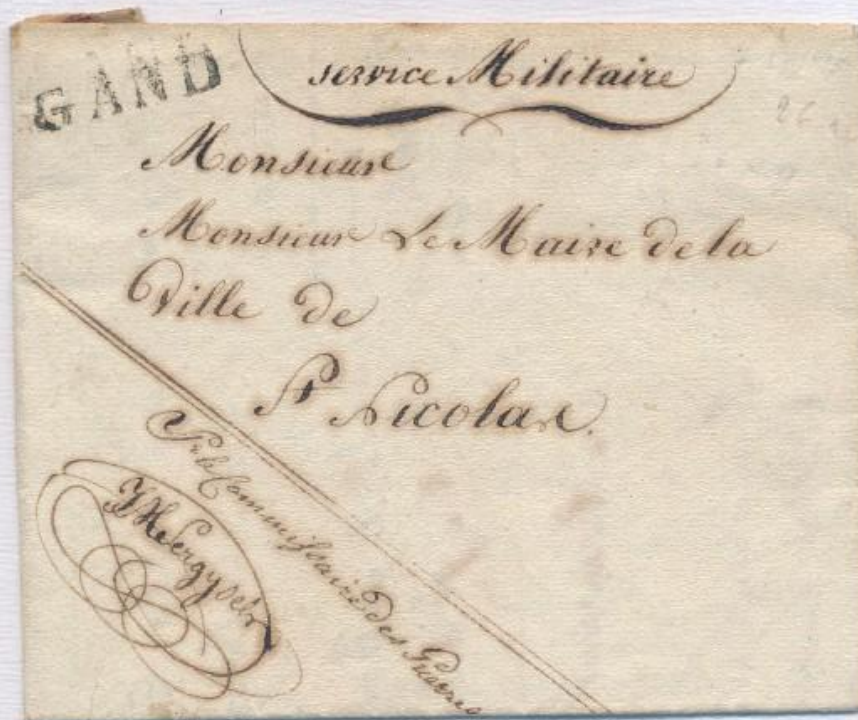 GAND
service Militaire
26
Monsieur
Monsieur Le Maire de la
Ville de
St Nicolas.
Pr le Commissaire des Guerres